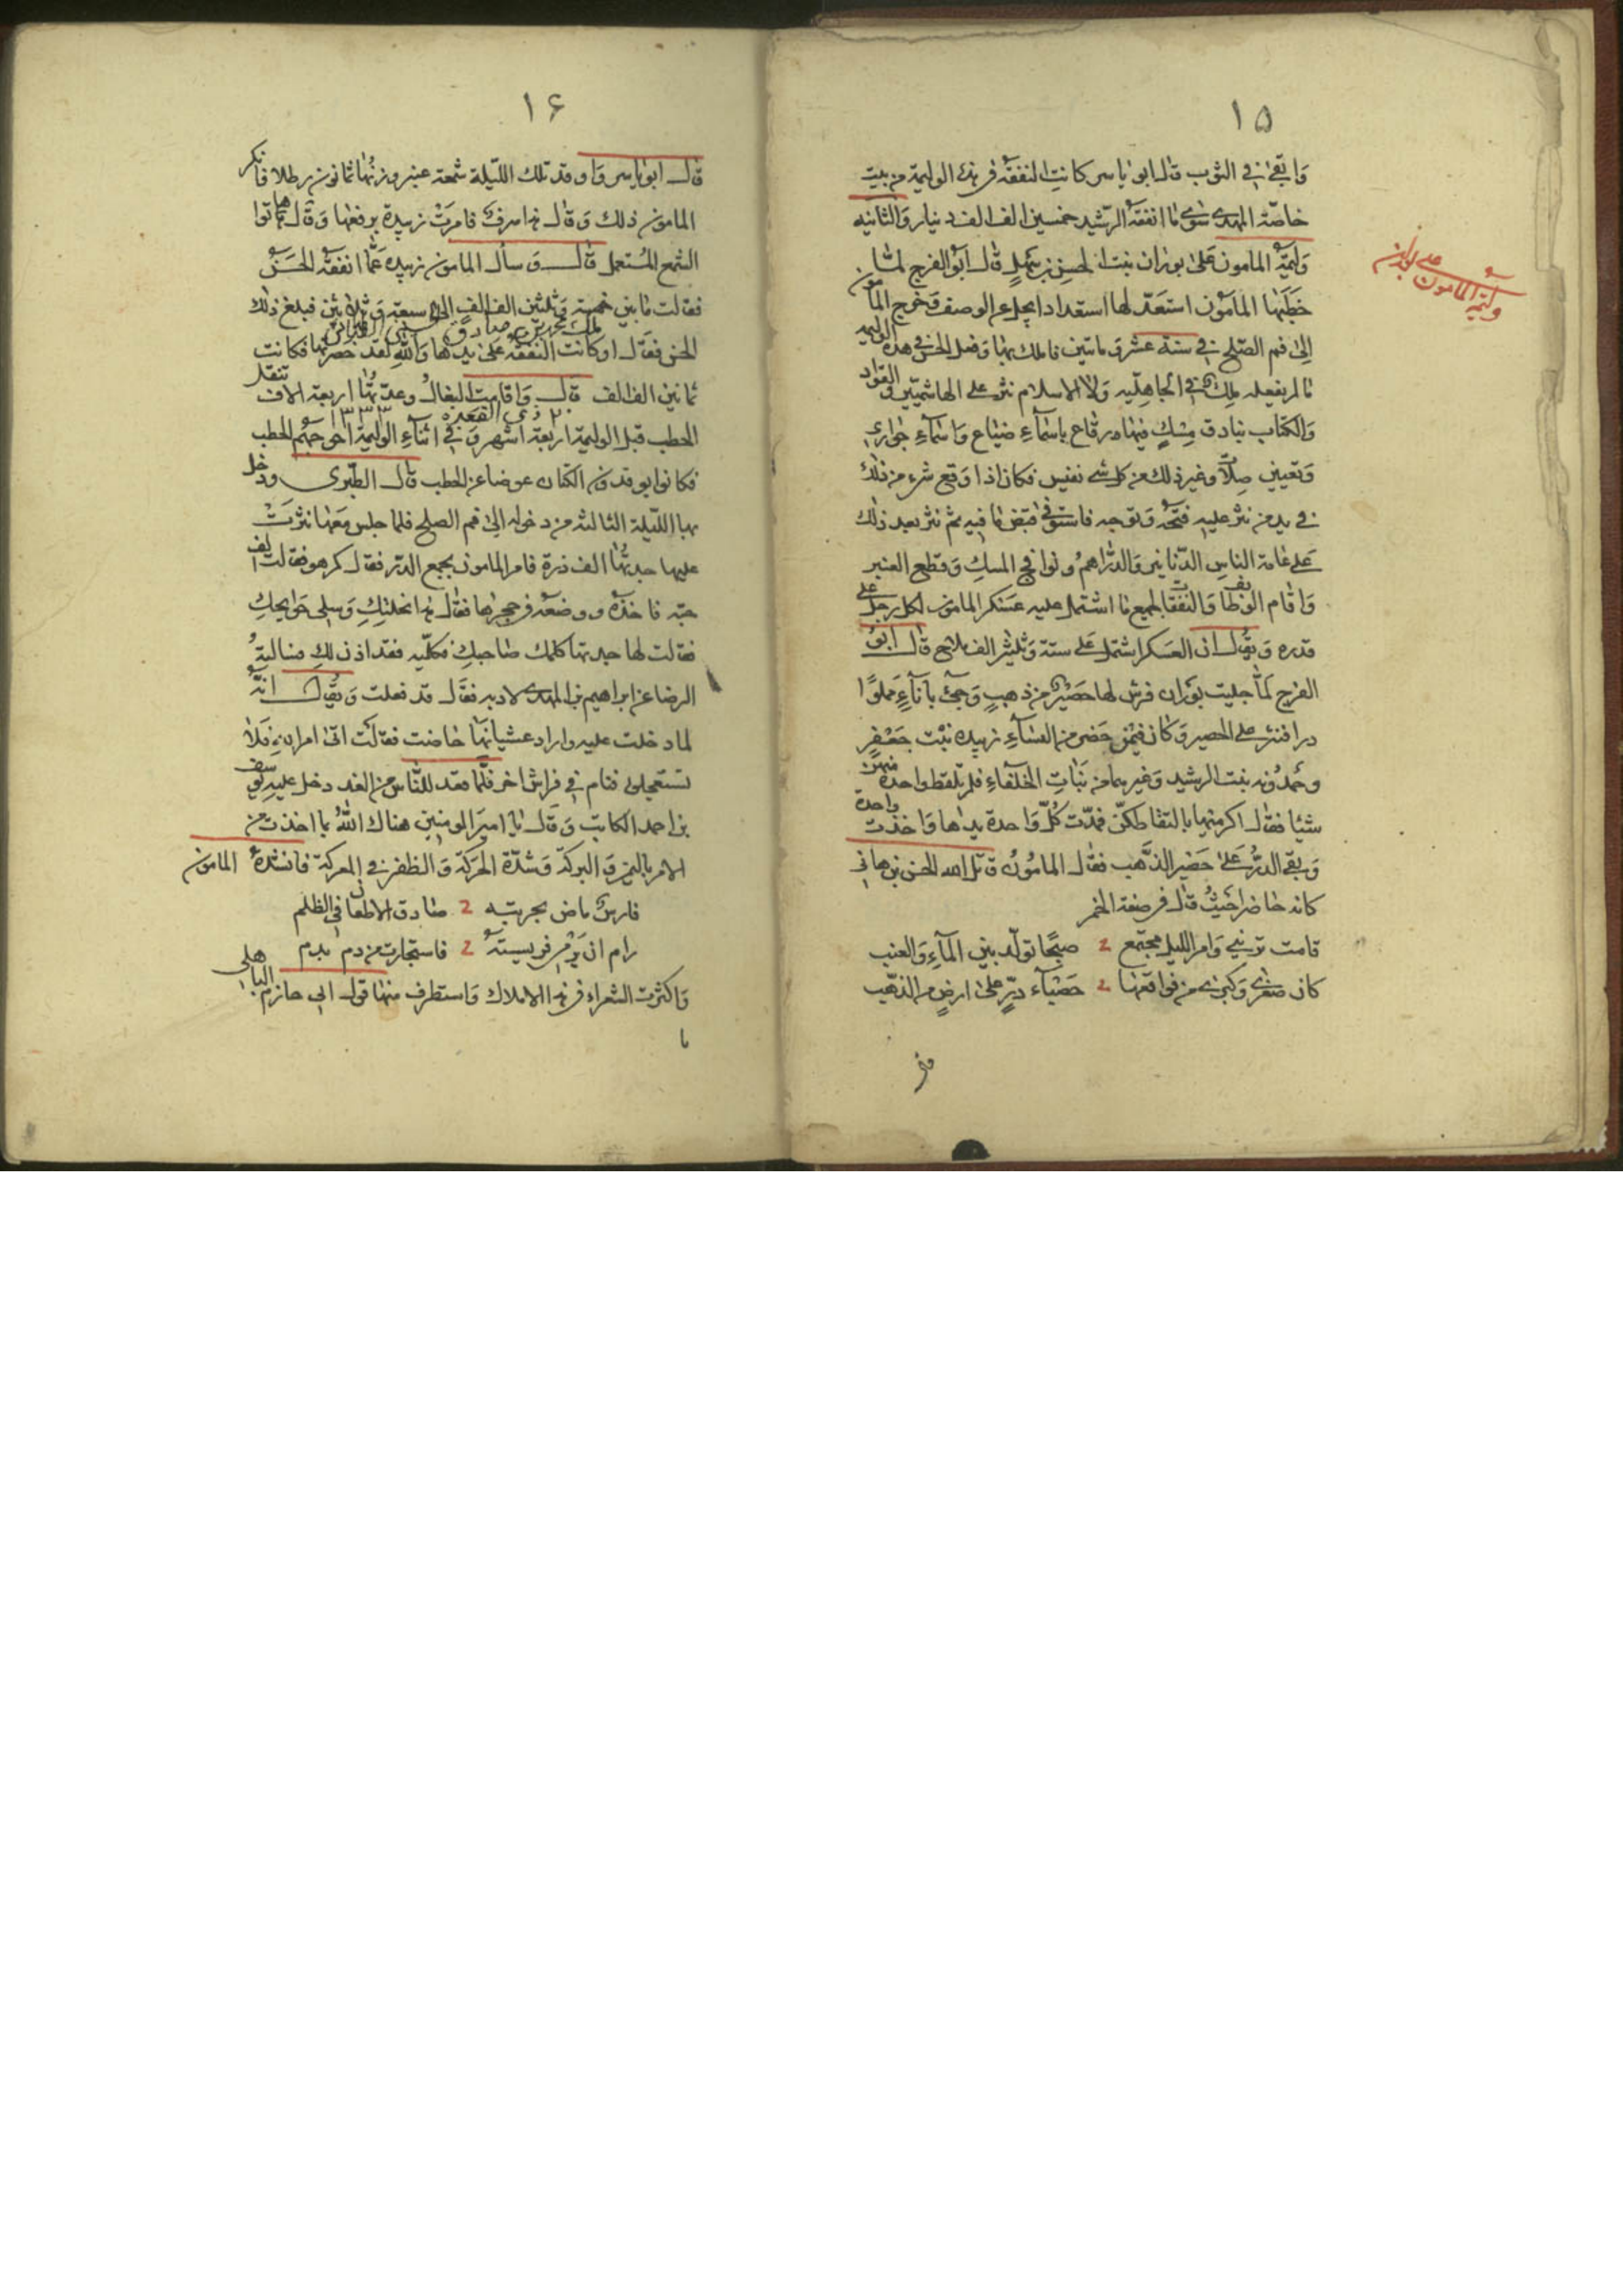 ١۵
وابقى في الثوب قال ابو ياسر كانت النفقة في هذه الوليمة من بيت
خاصّة المهدى سوى ما انفقه الرّشيد خمسين الف الف دينار والثانيه
وليمة المامون على بوران بنت الحسن بن سهل قال ابو الفرج لمّا
وليمة المامون على بوران
خطبها المامون استعدّ لها استعدادا يجل عن الوصف فخرج المامون
الى فم الصّلح في سنة عشر وماتين فاملك بها وفعل الحسن في هذه الوليمه
ما لم يفعله ملك في الجاهليّه ولا الاسلام نثر على الهاشميّين والقوّاد
والكتّاب بنادق مسك فيها رقاع باسماء ضياع واسماء جواري
وتعيين صلات وغير ذلك من كل شى نفيس فكان اذا وقع شىء من ذلك
في يد من نثر عليه فتحه وتوجه فاستوفى قبض ما فيه ثم نثر بعد ذلك
على عامة الناس الدّنانير والدّراهم ونوافج المسك وقطع العنبر
واقام الوظايف والنفقات لجميع ما اشتمل عليه عسكر المامون لكل رجل على
قدره ويقال ان العسكر اشتمل على ستة وثلثين الف ملاح قال ابو
الفرج لمّا جليت بوران فرش لها حصير من ذهب وجىء بآناء مملوّا
درا فنثر على الحصير وكان فيمن حضر من النساء زبيده بنت جعفر
وحمدونه بنت الرشيد وغيرهما من بنات الخلفاء فلم تلقط واحدة منهن
شيئا فقال اكرمنها بالتقاطكنّ فمدّت كلّ واحدة يدها واخذت واحدة
وبقى الدرّ على حصير الذّهب فقال المامون قاتل الله الحسن بن هانى
كانه حاضرا حيث قال فى صفة الخمر
قامت ترينى وامر الليل مجتمع صبحا تولّد بين الماء والعنب
كان صغرى وكبرى من فواقعها حصباء درّ على ارض من الذهب
١۶
قال ابو ياسر واوقد تلك الليلة شمعة عنبر وزنها ثمانون رطلا فانكر
المامون ذلك وقال هذا سرف فامرت زبيدة برفعها وقال هاتوا
الشمع المستعمل قال وسأل المامون زبيده عمّا انفقه الحسن
فقالت ما بين خمسة وثلثين الف الف الى سبعة وثلاثين فبلغ ذلك
الحسن فقال اوكانت النفقة على يدها والله لقد حصرتها فكانت
ثمانين الف الف قال واقامت البغال وعدّتها اربعة الاف تنقل
٢٠ ذى القعده ١٣٣٣
الحطب قبل الوليمة اربعة اشهر وفى اثناء الوليمة احوجهم الحطب
فكانوا يوقدون الكتان عوضا عن الحطب قال الطّبرى ودخل
بها الليلة الثالثة من دخوله الى فم الصلح فلما جلس معها نثرت
عليها جدتها الف درة فامر المامون بجمع الدّر فقال كم هو فقالت الف
حبّه فاخذه ووضعه فى حجرها فقال هذا نحلتك وسلى حوايجك
فقالت لها جدتها كلّمك صاحبك فكلّميه فقد اذن لك فسالته
الرضا عن ابراهيم بن المهدى فقال قد فعلت ويقال انّه
لما دخلت عليه واراد غشيانها حاضت فقالت اتى امر الله فلا
تستعجلوه فنام فى فراش اخر فلما قعد للنّاس من الغد دخل عليه يوسف
بن احمد الكاتب وقال يا امير المومنين هناك الله بما اخذت من
الامر باليمن والبركة وشدّة الحركة والظفر فى المعركة فانشده المامون
فارس ماض بحربته صادق الاطعان فى الظلم
رام ان يدمى فريسته فاستجارت من دم بدم
واكثرت الشعراء فى هذا الاملاك واستطرف منها قول ابى حازم الباهلى